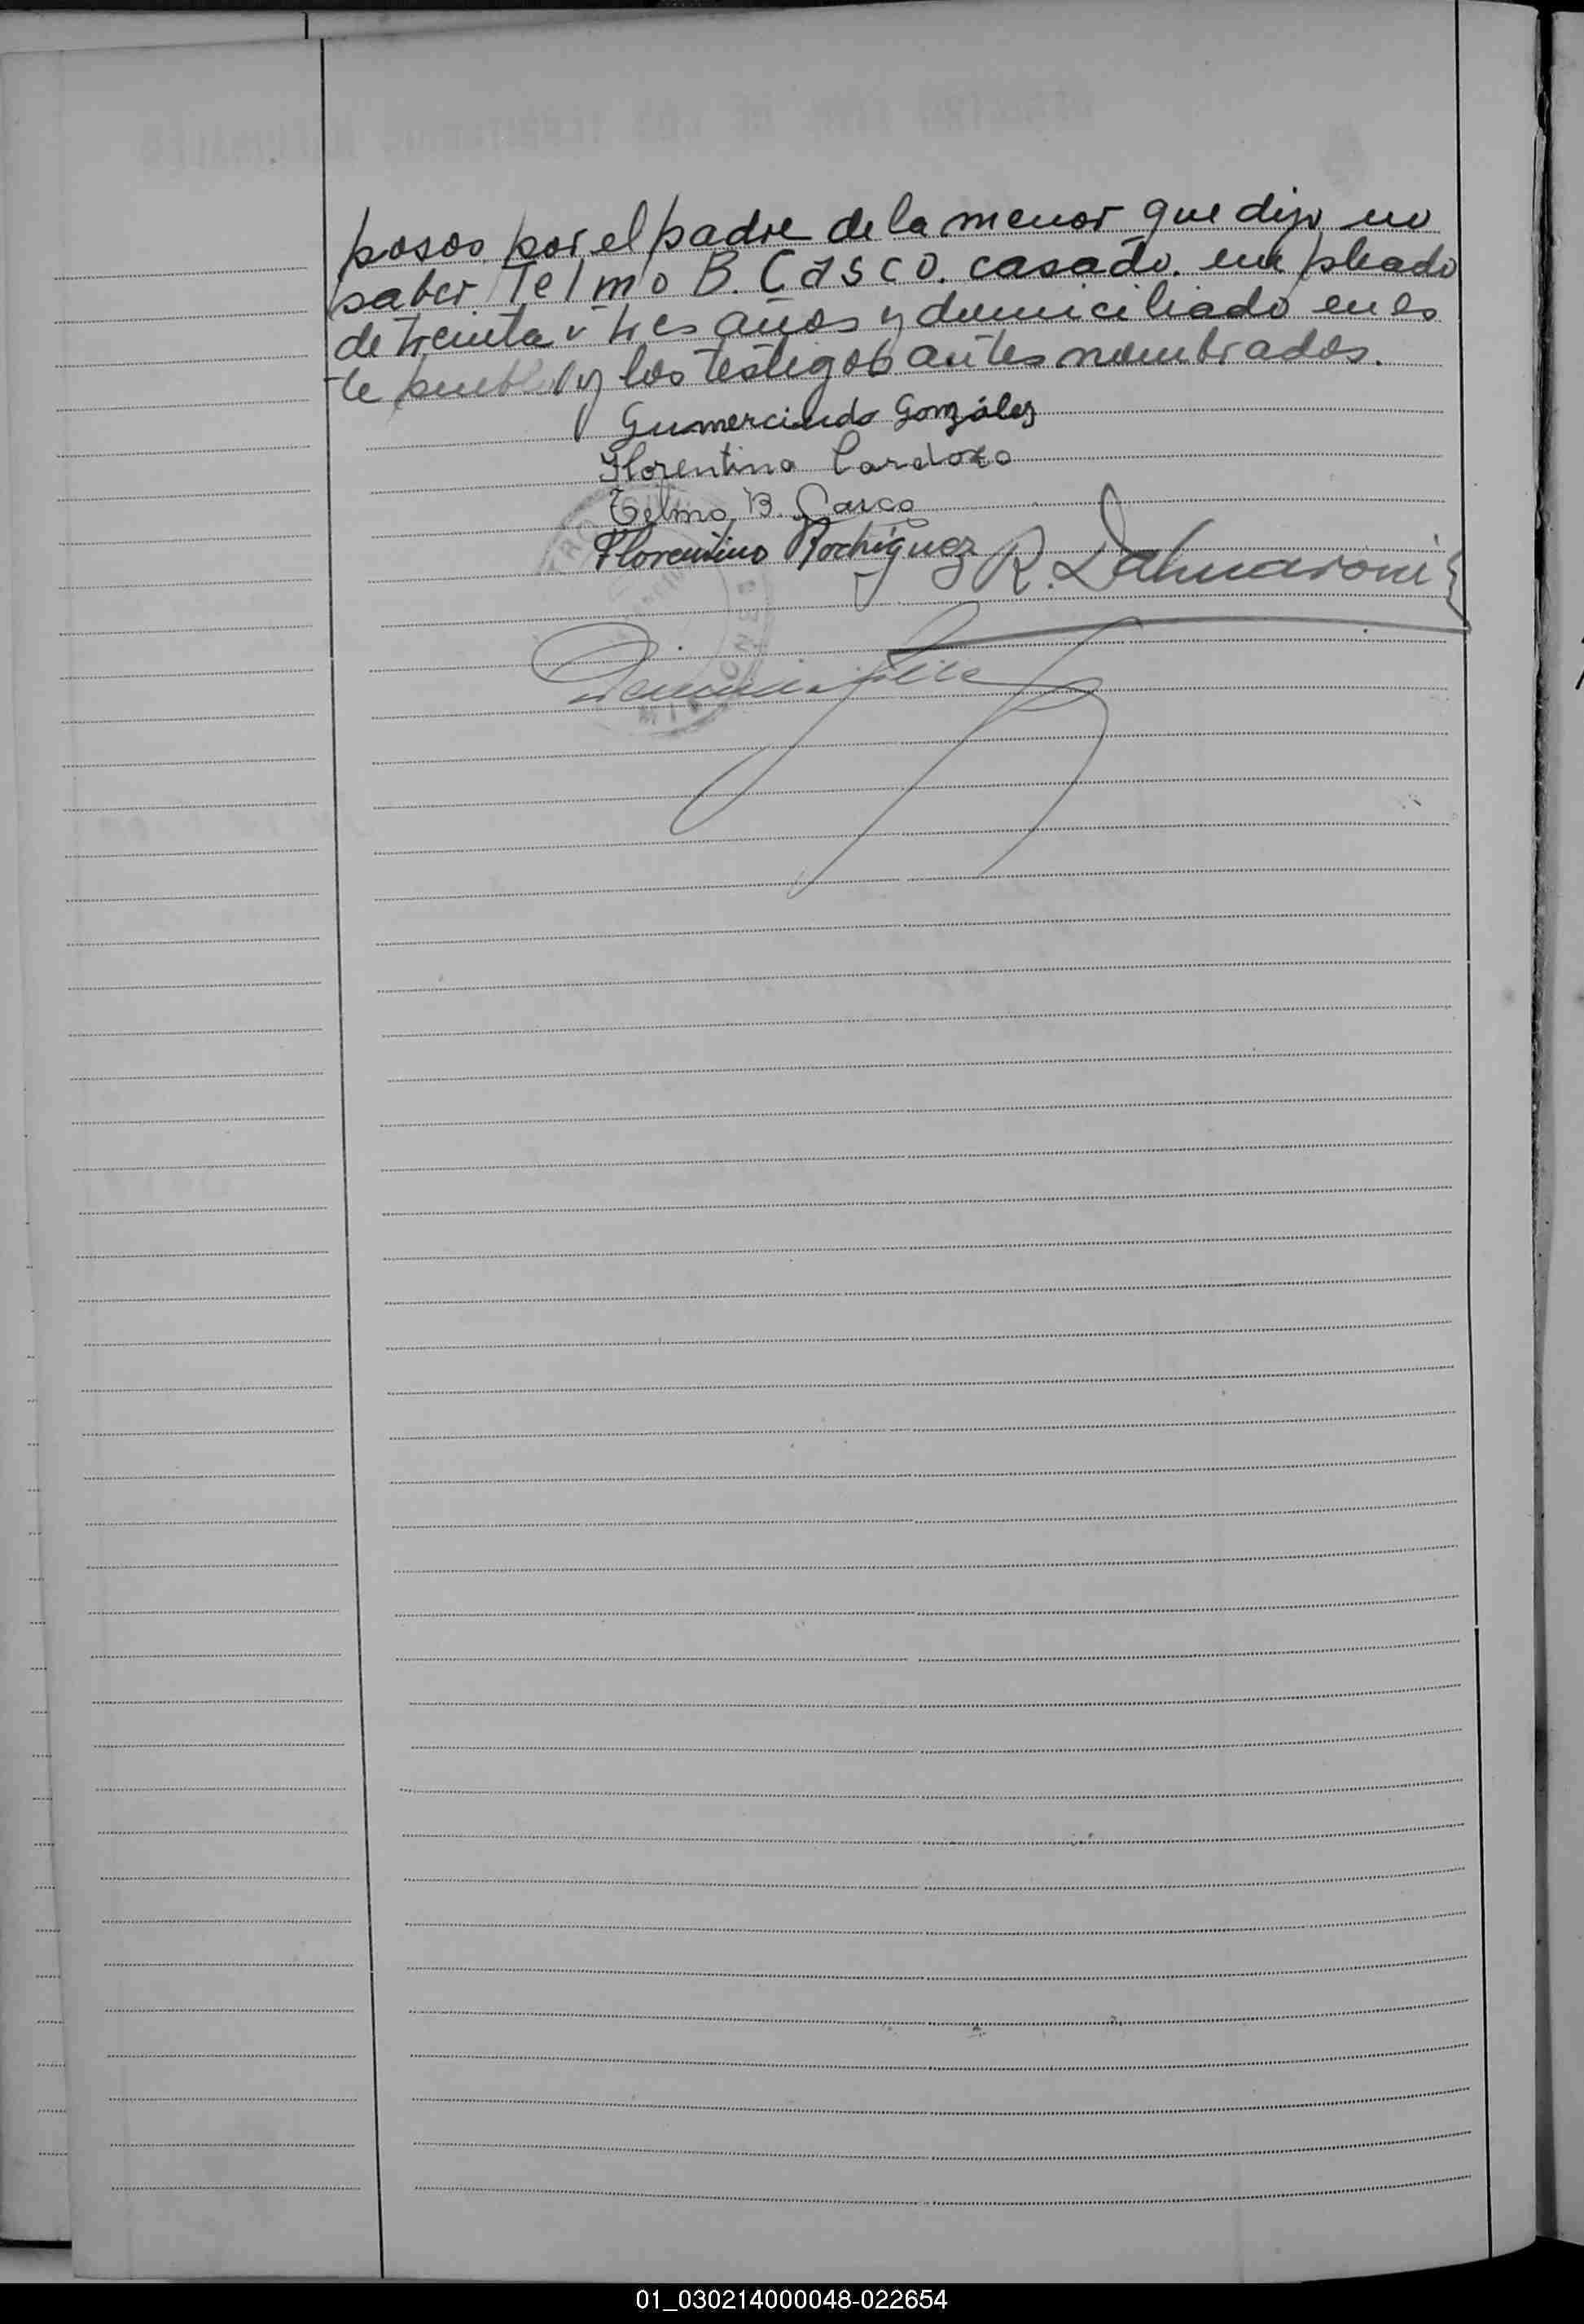 posos por el padre de la menor que dijo no
saber Telmo B. Casco. casado. empleado
de treinta y tres años y domiciliado en es
te pueblo y los testigos antes nombrados.
Gumercindo González
Florentina Cardozo
Telmo B. Casco
Florentino Rodríguez R. Dalmaroni
MISIONES
01_030214000048-022654